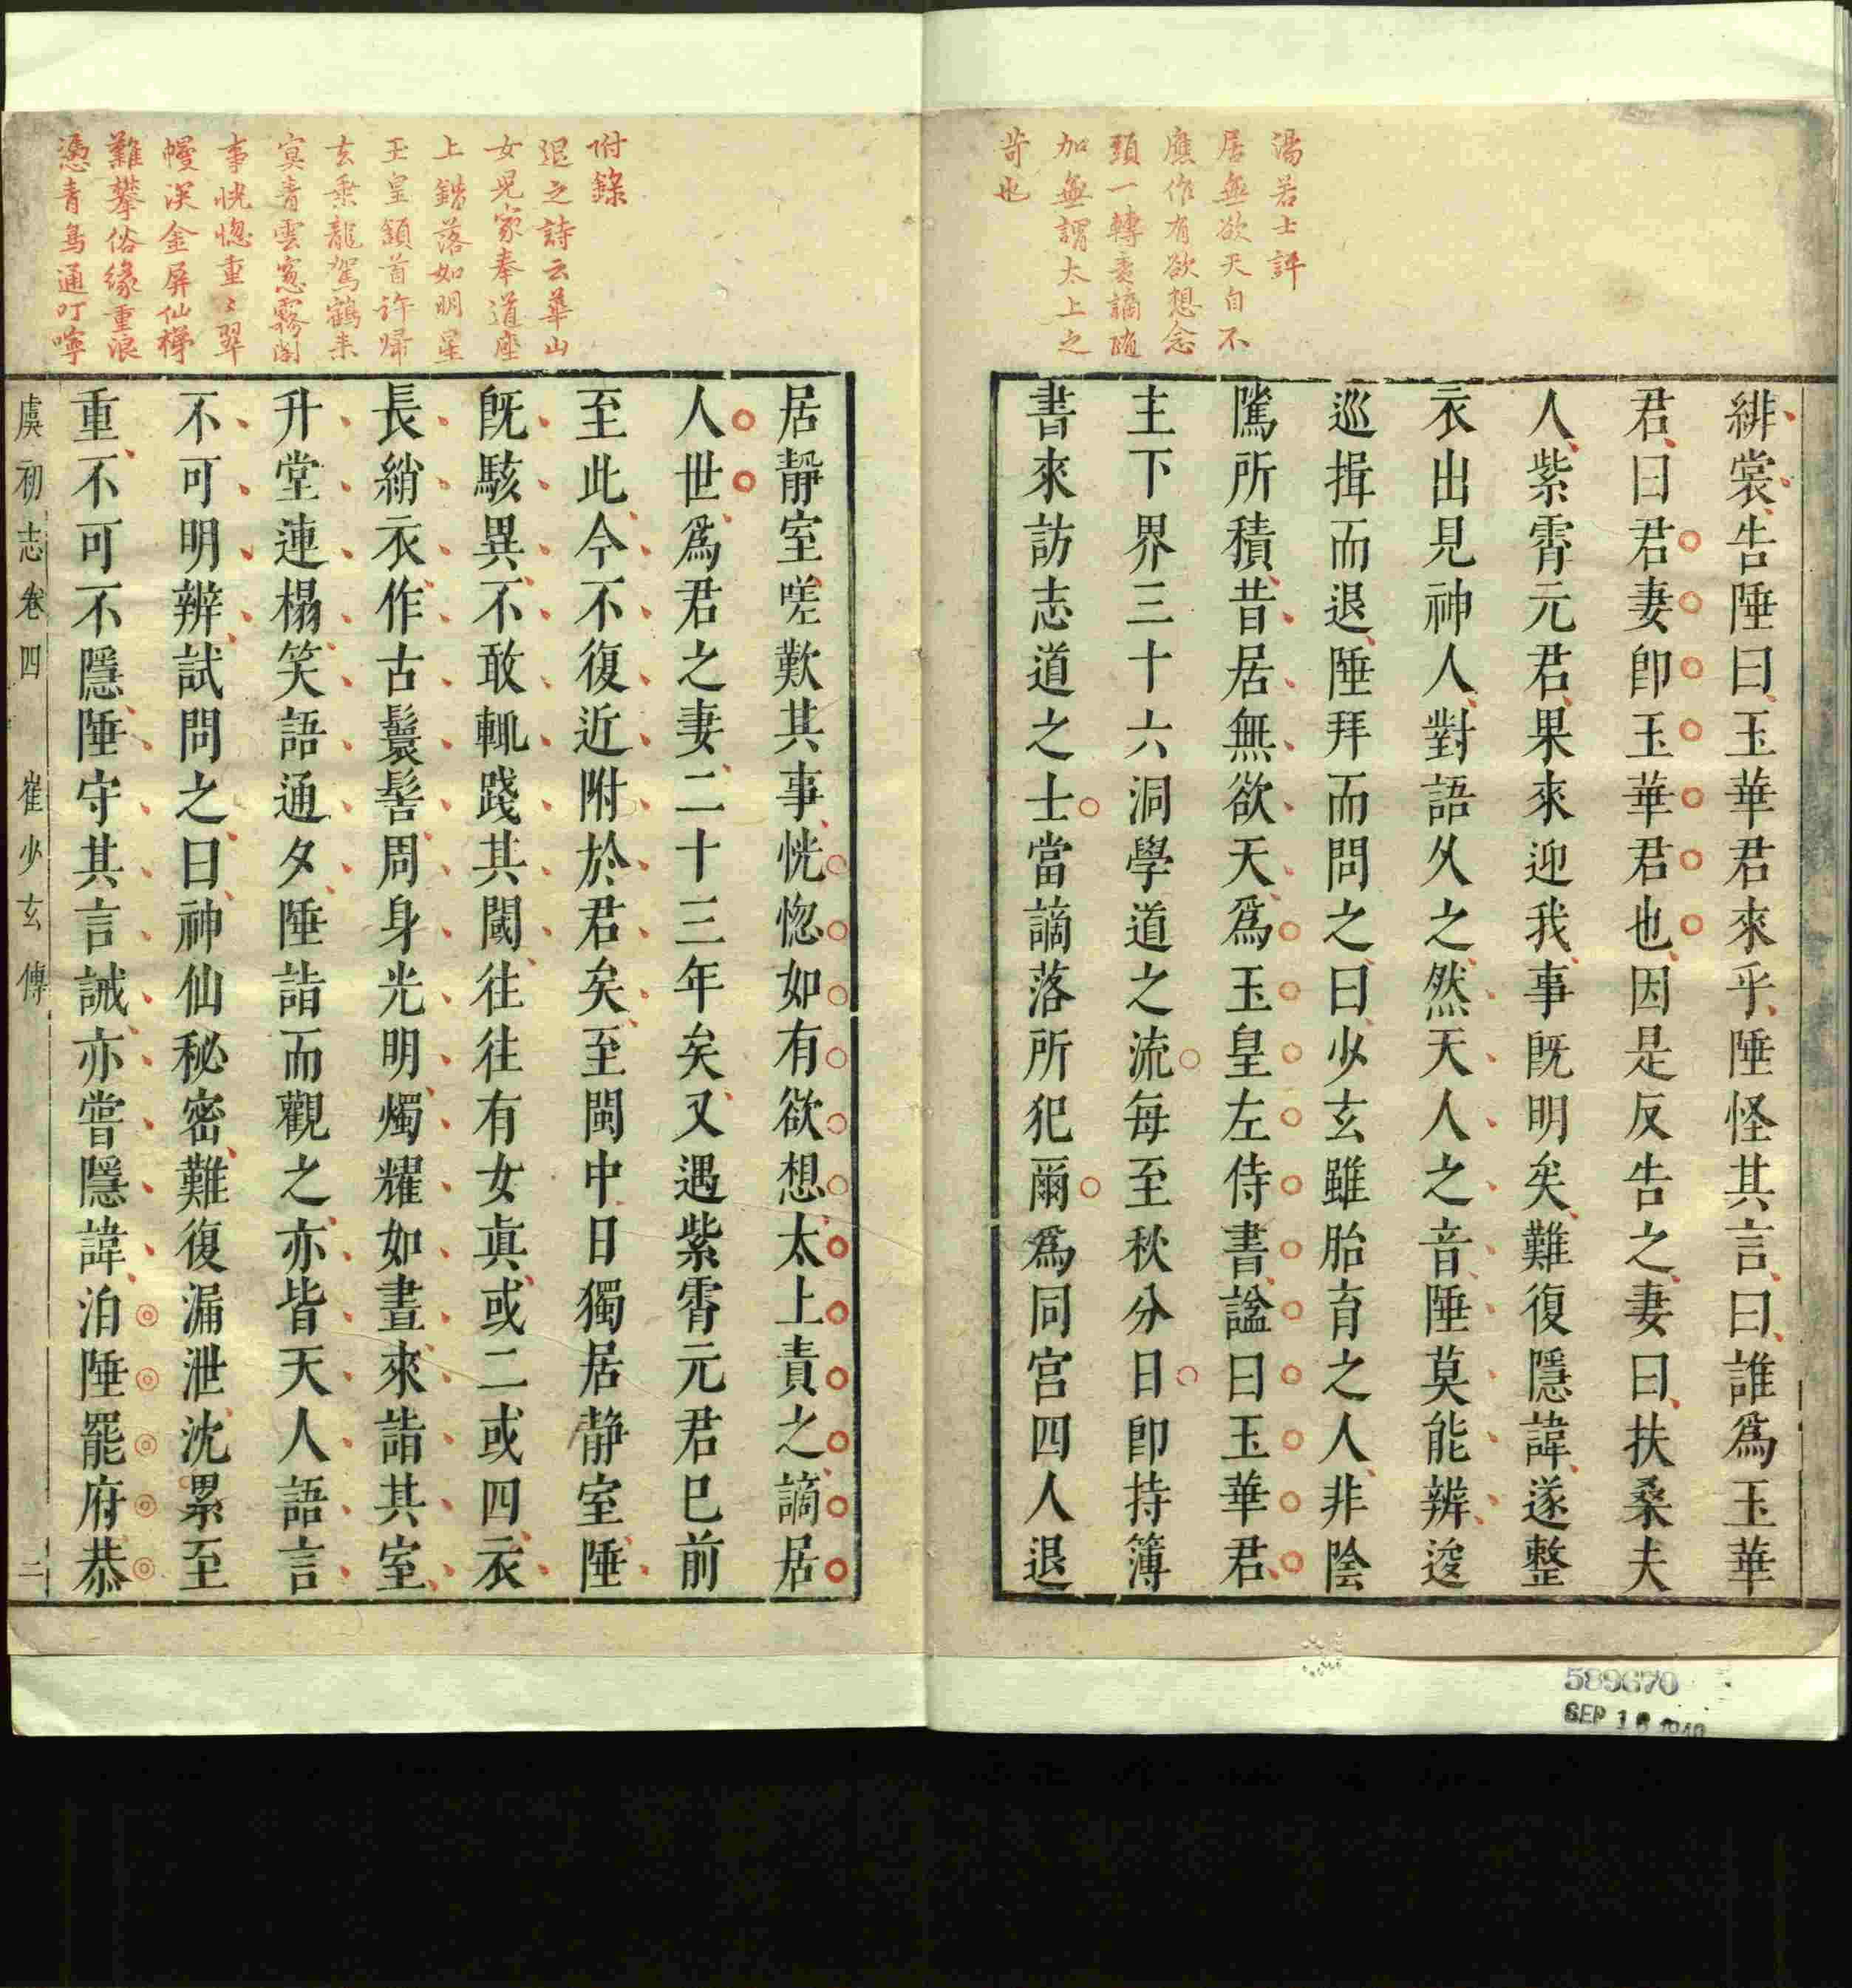 湯若士評
居無欲天自不
應作有欲想念
頭一轉責謫随
加無謂太上之
苛也
緋裳告陲曰玉華君來乎陲怪其言曰誰爲玉華
君曰君妻卽玉華君也因是反告之妻曰扶桑夫
人紫霄元君果來迎我事旣明矣難復隱諱遂整
衣出見神人對語久之然天人之音陲莫能辨逡
巡揖而退陲拜而問之曰少玄雖胎育之人非陰
隲所積昔居無欲天爲玉皇左侍書謚曰玉華君
主下界三十六洞學道之流每至秋分日卽持簿
書來訪志道之士當謫落所犯爾爲同宫四人退
附錄
退之詩云華山
女兒家奉道座
上鐕落如明星
玉皇頷首許歸
去乘龍駕鶴来
寞青雲窓霧閣
事恍惚重〻翠
幔深金屏仙梯
難攀俗緣重浪
憑青鳥通叮嚀
居靜室嗟歎其事恍惚如有欲想太上責之謫居
人世爲君之妻二十三年矣又遇紫霄元君已前
至此今不復近附於君矣至閩中日獨居静室陲
旣駭異不敢輒踐其閾往往有女眞或二或四衣
長綃衣作古鬟髻周身光明燭耀如晝來詣其室
升堂連榻笑語通夕陲詣而觀之亦皆天人語言
不可明辨試問之曰神仙秘密難復漏泄沈累至
重不可不隱陲守其言誡亦嘗隱諱洎陲罷府恭
虞初志卷四 崔少玄傳 二
589670
SEP 16 1940